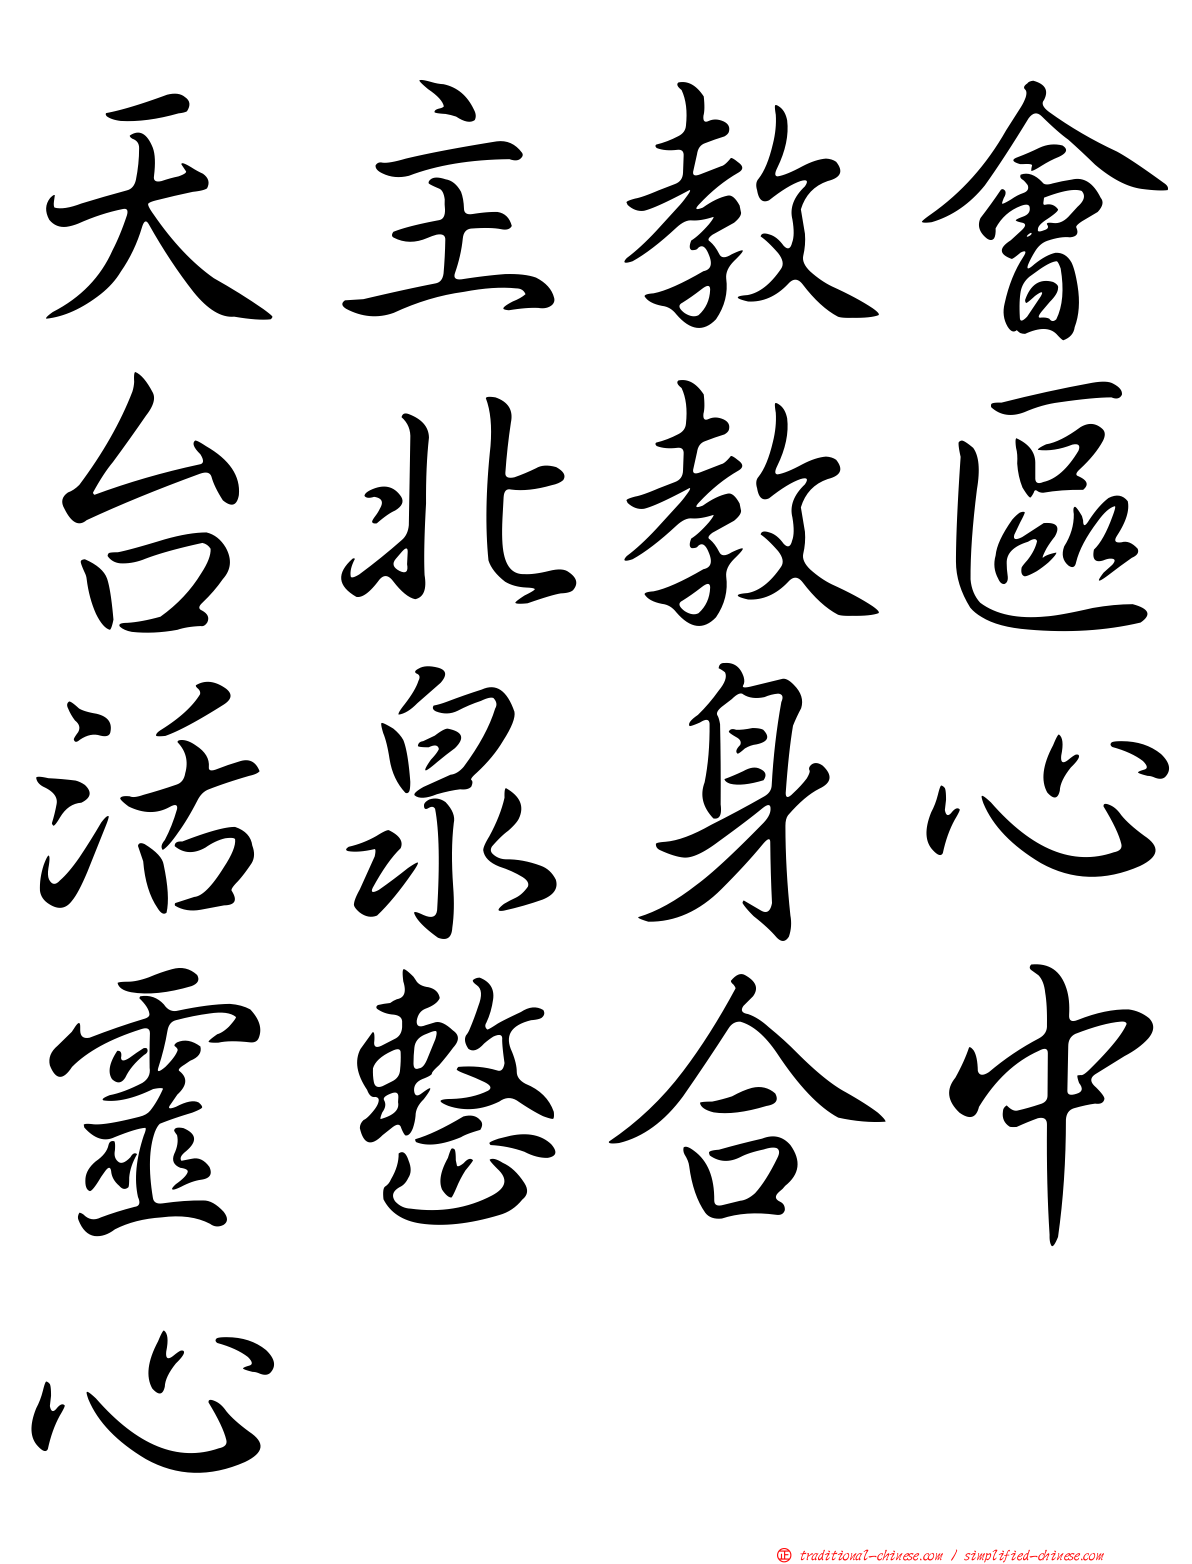 天主教會
台北教區
活泉身心
靈整合中
心
正 traditional-chinese.com / simplified-chinese.com